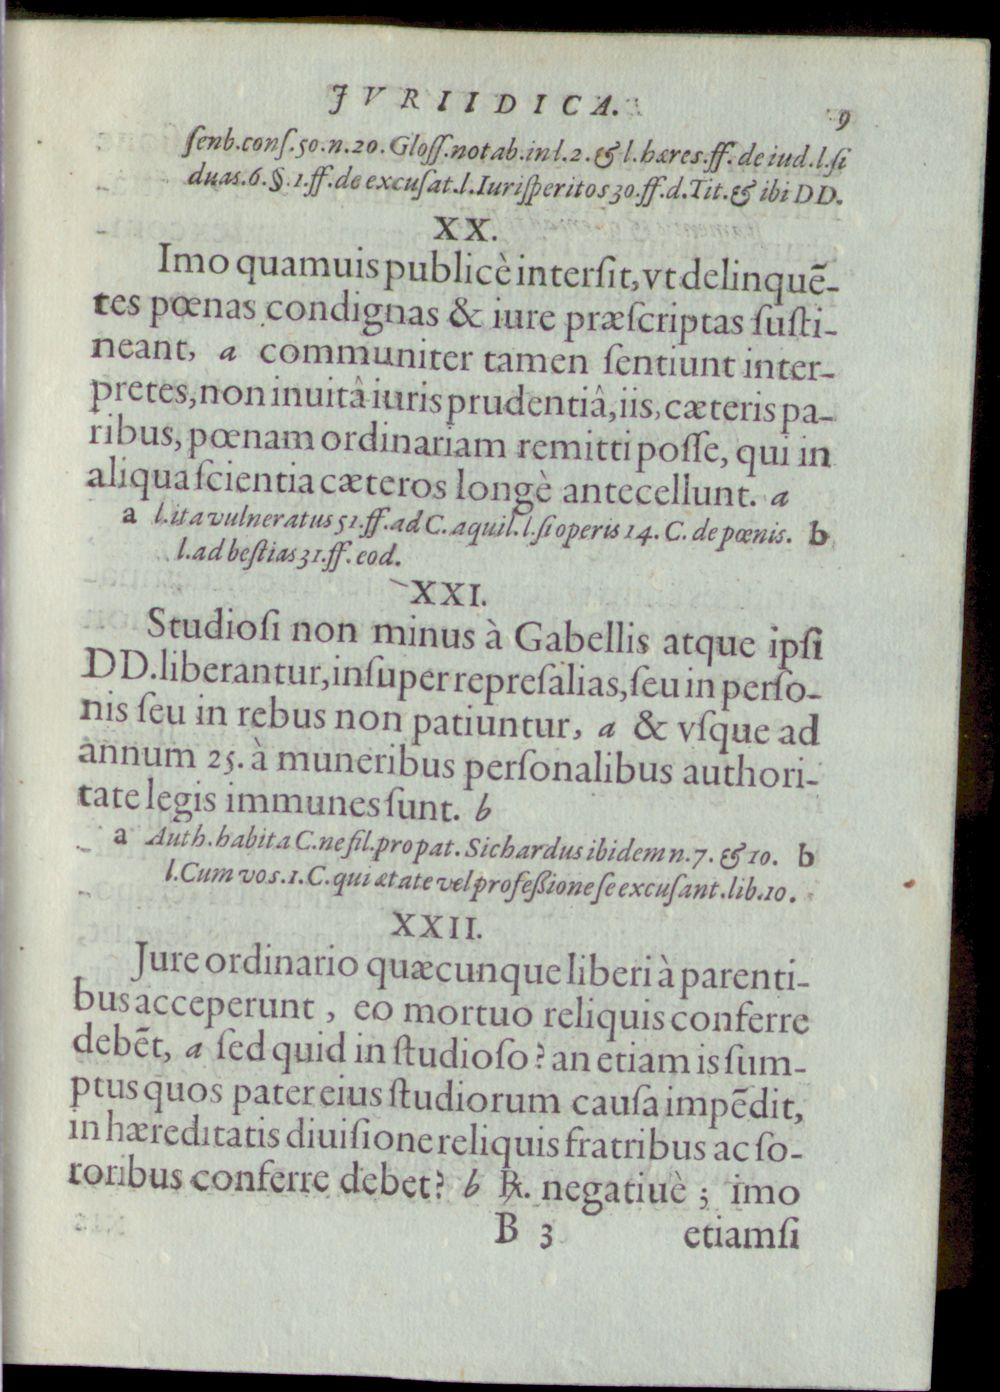 JVRIIDICA. 9
ſenb.conſ.50.n.20.Gloſſ.notab.inl.2.&l.hæres.ff.de iud.l.ſi
duas.6.§.1.ff.de excuſat.l.Iuriſperitos30.ff.d.Tit.& ibi DD.
XX.
Imo quamuis publicè interſit, vt delinquẽ-
tes pœnas condignas & iure præſcriptas ſuſti-
neant, a communiter tamen ſentiunt inter-
pretes, non inuitâ iuris prudentiâ, iis, cæteris pa-
ribus, pœnam ordinariam remitti poſſe, qui in
aliqua ſcientia cæteros longè antecellunt. a
a l.ita vulneratus 51.ff.ad C.aquil.l.ſi operis 14. C. de pœnis. b
l.ad beſtias 31.ff.eod.
XXI.
Studioſi non minus à Gabellis atque ipſi
DD.liberantur, inſuper repreſalias, ſeu in perſo-
nis ſeu in rebus non patiuntur, a & vſque ad
annum 25. à muneribus perſonalibus authori-
tate legis immunes ſunt. b
a Auth.habita C.ne fil.pro pat. Sichardus ibidem n.7. & 10. b
l.Cum vos.1.C.qui ætate vel profeßione ſe excuſant.lib.10.
XXII.
Jure ordinario quæcunque liberi à parenti-
bus acceperunt, eo mortuo reliquis conferre
debẽt, a ſed quid in ſtudioſo? an etiam is ſum-
ptus quos pater eius ſtudiorum cauſa impẽdit,
in hæreditatis diuiſione reliquis fratribus ac ſo-
roribus conferre debet? b ℞. negatiuè; imo
B 3 etiamſi